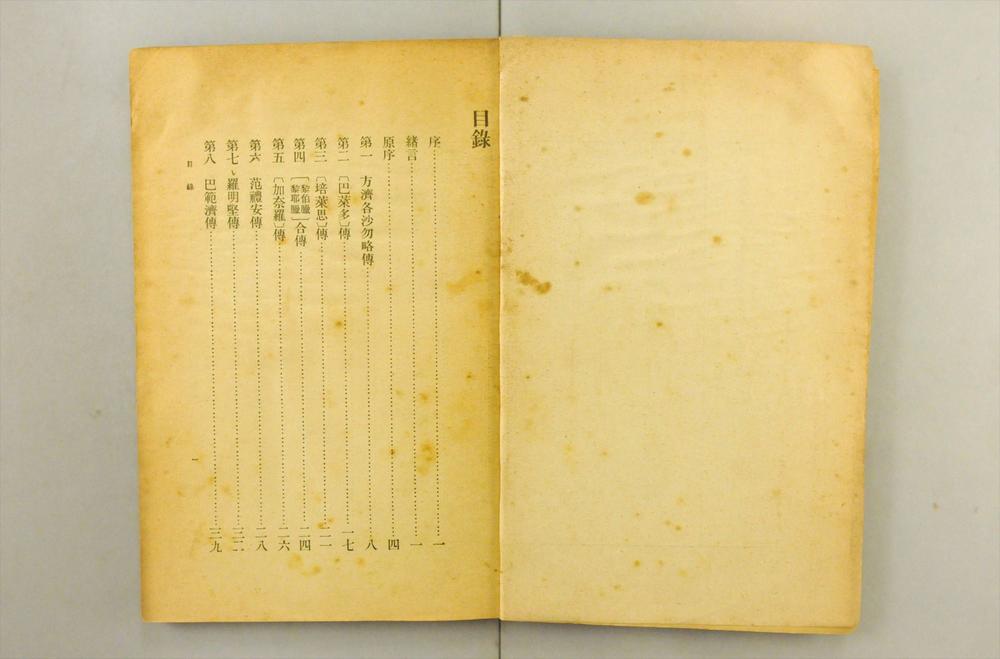 目錄
序……一
緒言……一
原序……四
第一 方濟各沙勿略傳……八
第二 〔巴萊多〕傳……一七
第三 〔培萊思〕傳……二一
第四 〔黎伯臘 黎耶臘〕合傳……二四
第五 〔加奈羅〕傳……二六
第六 范禮安傳……二八
第七 羅明堅傳……三二
第八 巴範濟傳……三九
目錄
一